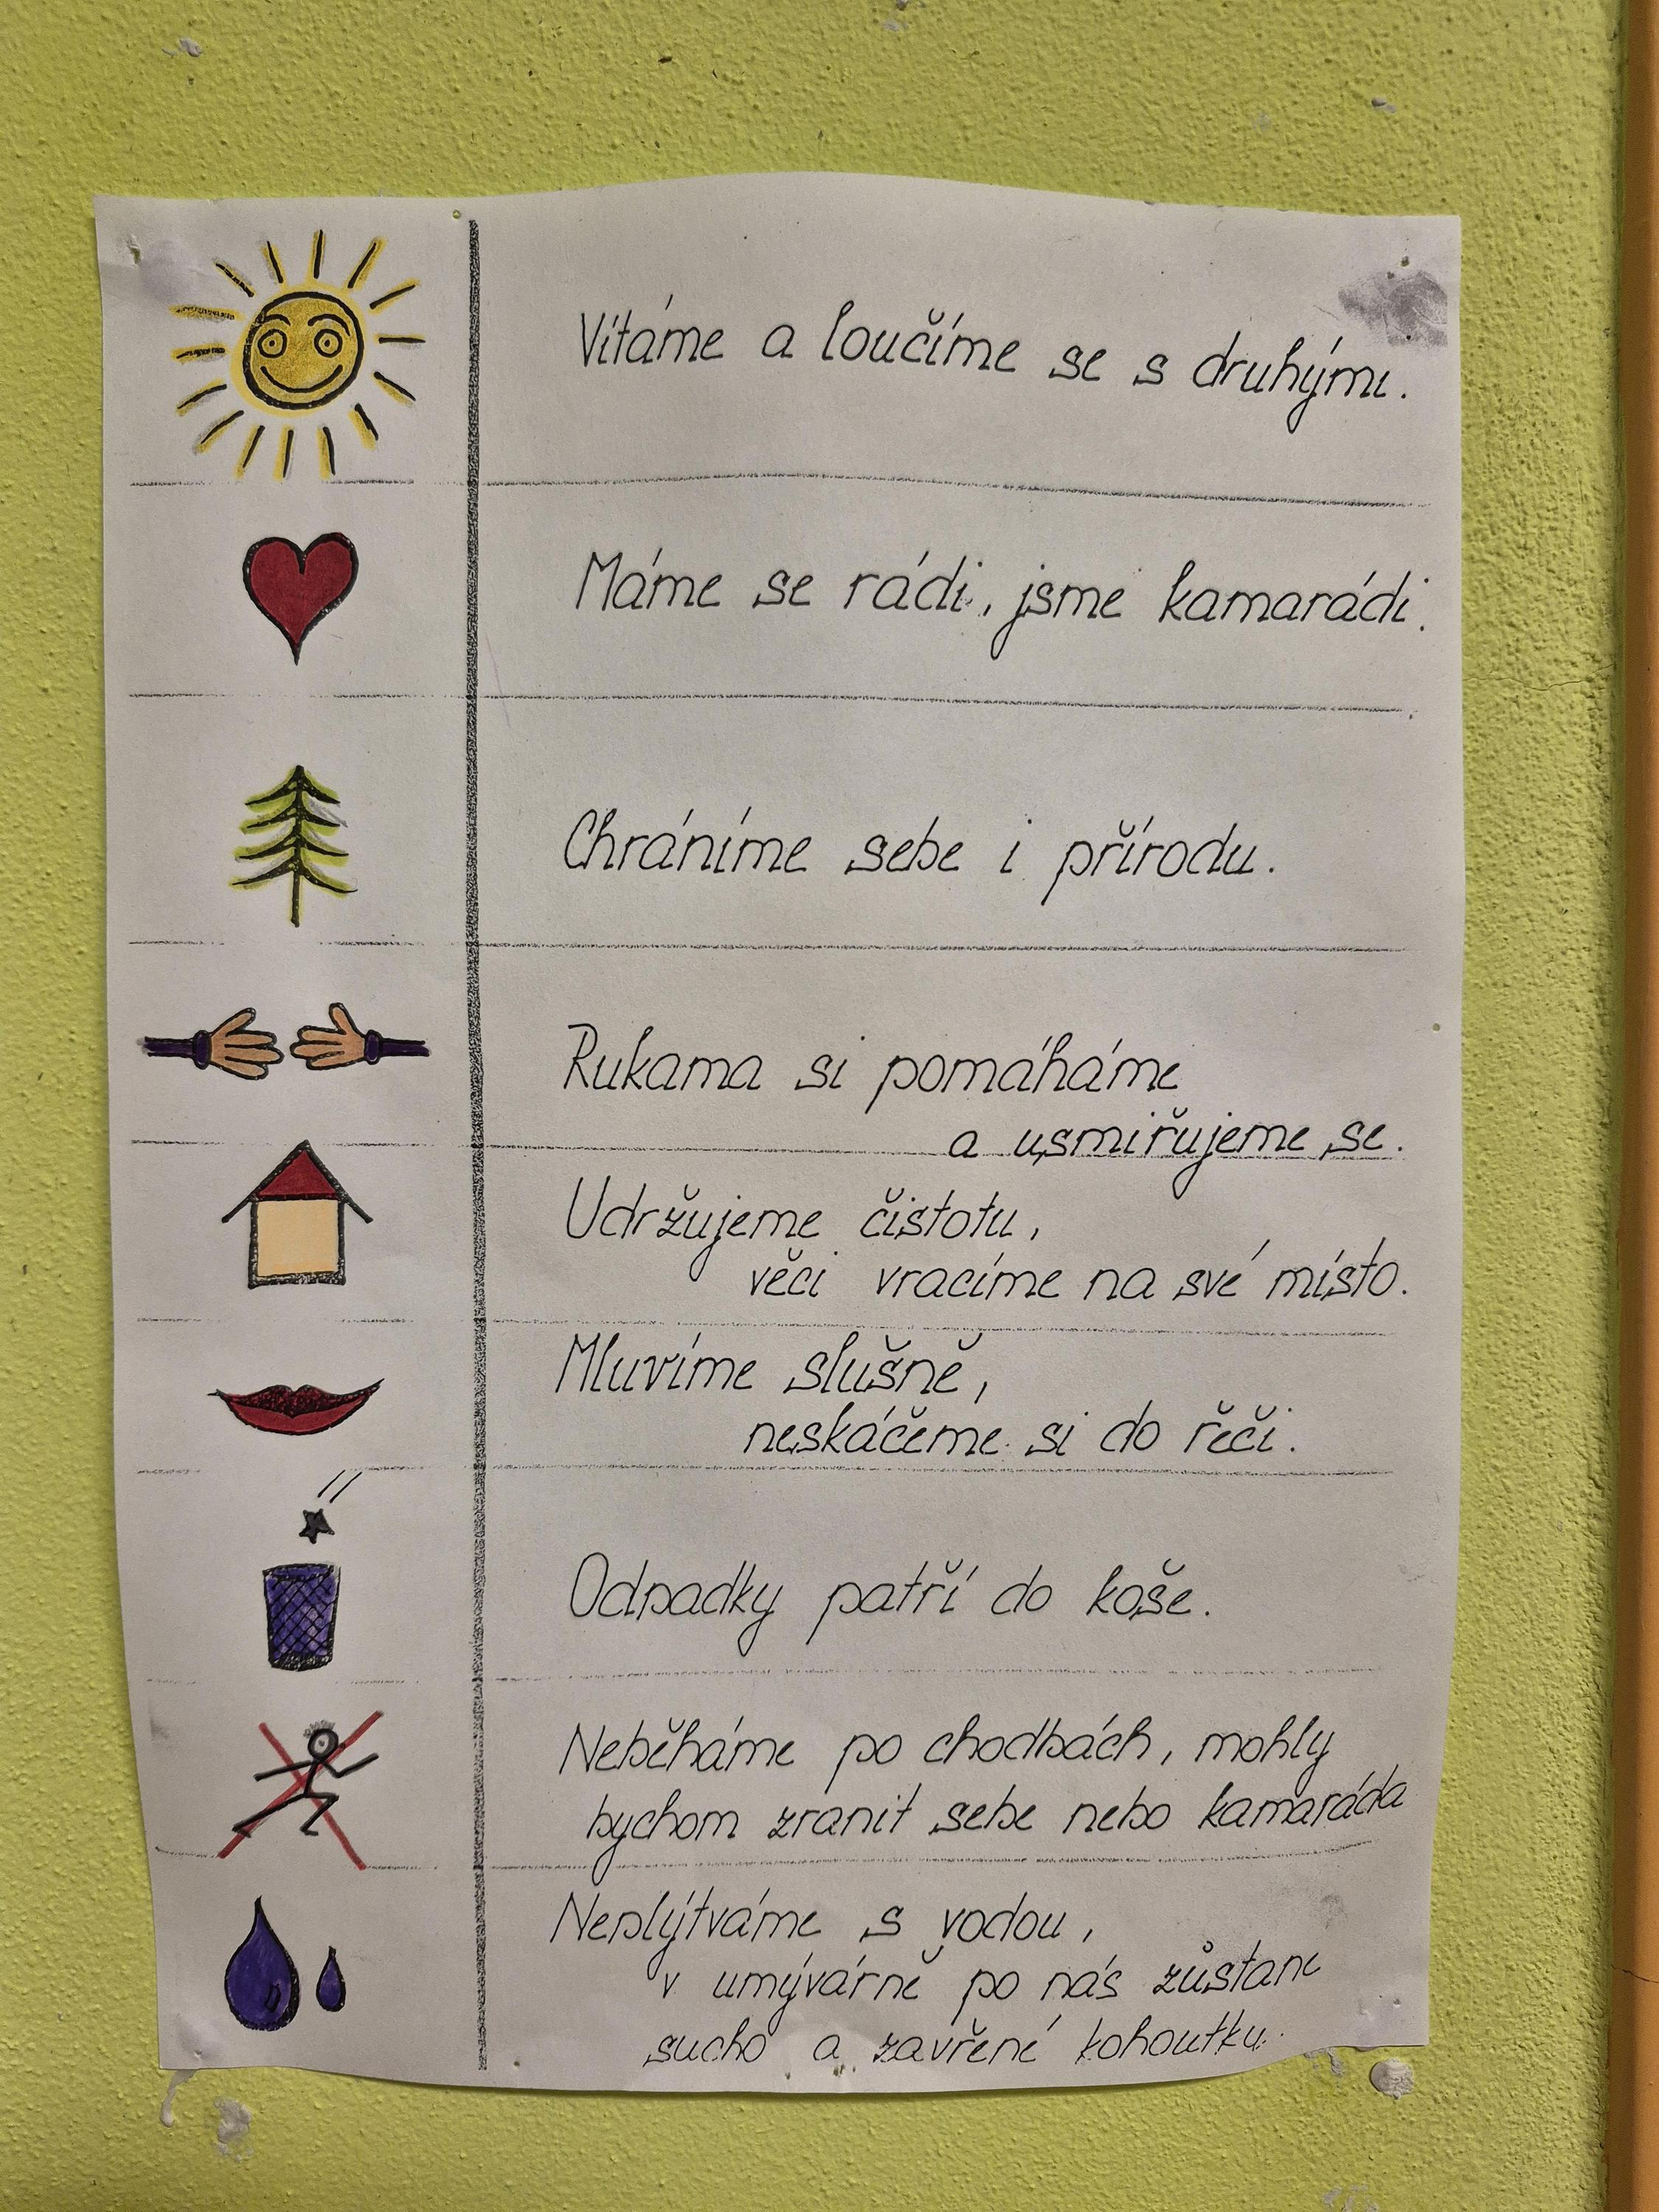 Vítáme a loučíme se s druhými.
Máme se rádi, jsme kamarádi.
Chráníme sebe i přírodu.
Rukama si pomáháme
a usmiřujeme se.
Udržujeme čistotu,
věci vracíme na své místo.
Mluvíme slušně,
neskáčeme si do řeči.
Odpadky patří do koše.
Neběháme po chodbách, mohly
bychom zranit sebe nebo kamaráda
Neplýtváme s vodou,
v umývárně po nás zůstane
sucho a zavřené kohoutky.